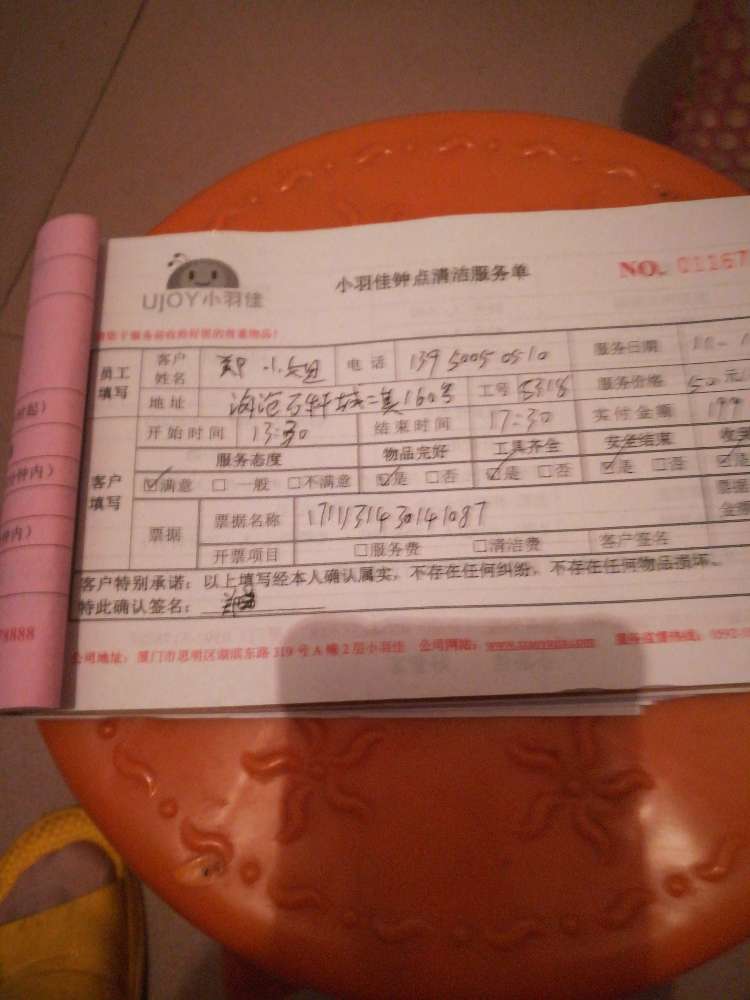 UJOY小羽佳
小羽佳钟点清洁服务单
NO. 01167
员工填写 客户姓名 郑小姐 电话 13950050510 服务日期
地址 海沧 160号 工号 5318 服务价格 50元
开始时间 13:30 结束时间 17:30 实付金额 199
客户填写 服务态度 物品完好 工具齐全 安全结束
☑满意 □一般 □不满意 ☑是 □否 ☑是 □否 ☑是 □否 ☑是
票据 票据名称 1711131430141087 票据
开票项目 □服务费 □清洁费 客户签名
客户特别承诺：以上填写经本人确认属实，不存在任何纠纷，不存在任何物品损坏。
特此确认签名：
公司地址：厦门市思明区湖滨东路319号A幢2层小羽佳 公司网站： 服务监督热线：0592-
钟内）
78888